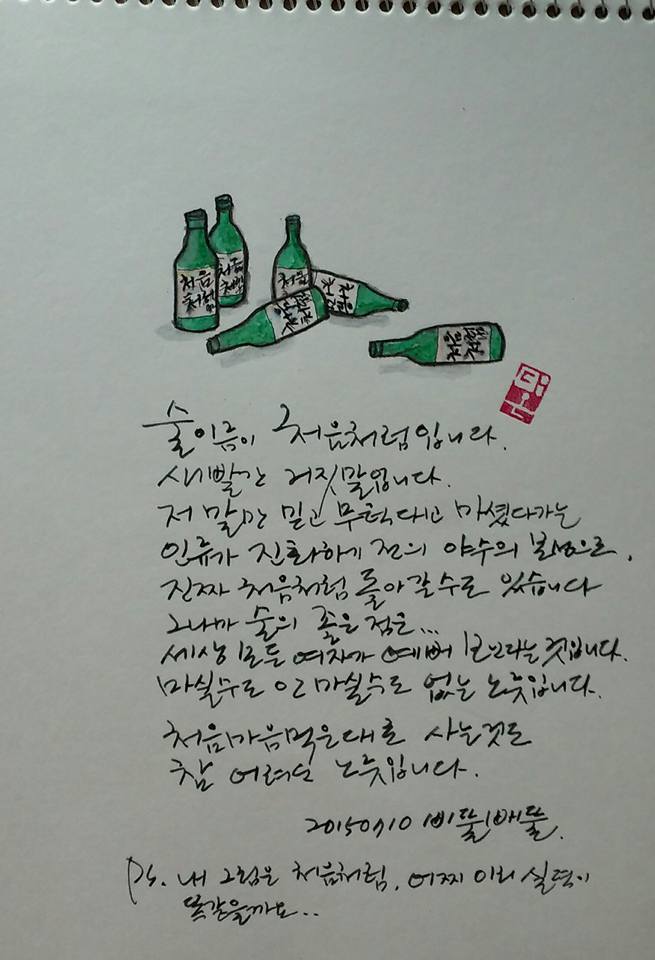 처음
처럼
처음
처럼
처음
처음
처럼
처음
처럼
술이름이 처음처럼입니다.
새빨간 거짓말입니다.
저 말만 믿고 무턱대고 마셨다가는
인류가 진화하기 전의 야수의 본성으로,
진짜 처음처럼 돌아갈수도 있습니다
그나마 술의 좋은 점은...
세상 모든 여자가 예뻐 보인다는 것입니다.
마실수도 안 마실수도 없는 노릇입니다.
처음마음먹은대로 사는것도
참 어려운 노릇입니다.
20150710 삐뚤빼뚤.
Ps. 내 그림은 처음처럼, 어찌 이리 실력이
똑같을까요..